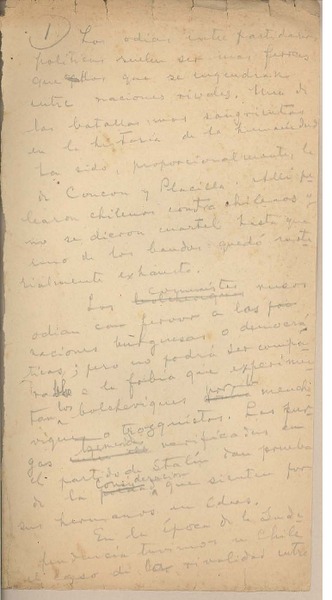 1
Los odios entre partidarios
políticos suelen ser más feroces
que los que se engendran
entre naciones rivales. Una de
las batallas más sangrientas
en la historia de la humanidad
ha sido, proporcionalmente, la
de Concon y Placilla. Allí pe
learon chilenos contra chilenos y
no se dieron cuartel hasta que
uno de los bandos quedó mate
rialmente exhausto.
Los comunistas rusos
odian con fervor a las
naciones burguesas o democrá
ticas; pero no podrá ser compa
rado a la fobia que experimen
tan los bolcheviques por menche
viques o trozquistas. Las pur
gas verificadas en
el partido de Stalín dan prueba
de la consideración que sienten por
sus hermanos en ideas.
En la época de la Inde
pendencia tuvimos en Chile
el caso de la rivalidad entre